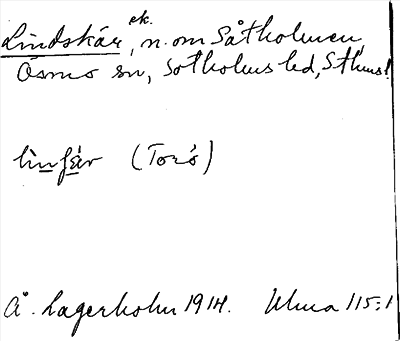 ek.
Lindskär, n. om Såtholmen,
Ösmo sn, Sotholms hd, Sthms l.
linſär (Torö)
Å. Lagerholm 1914. Ulma 115:1